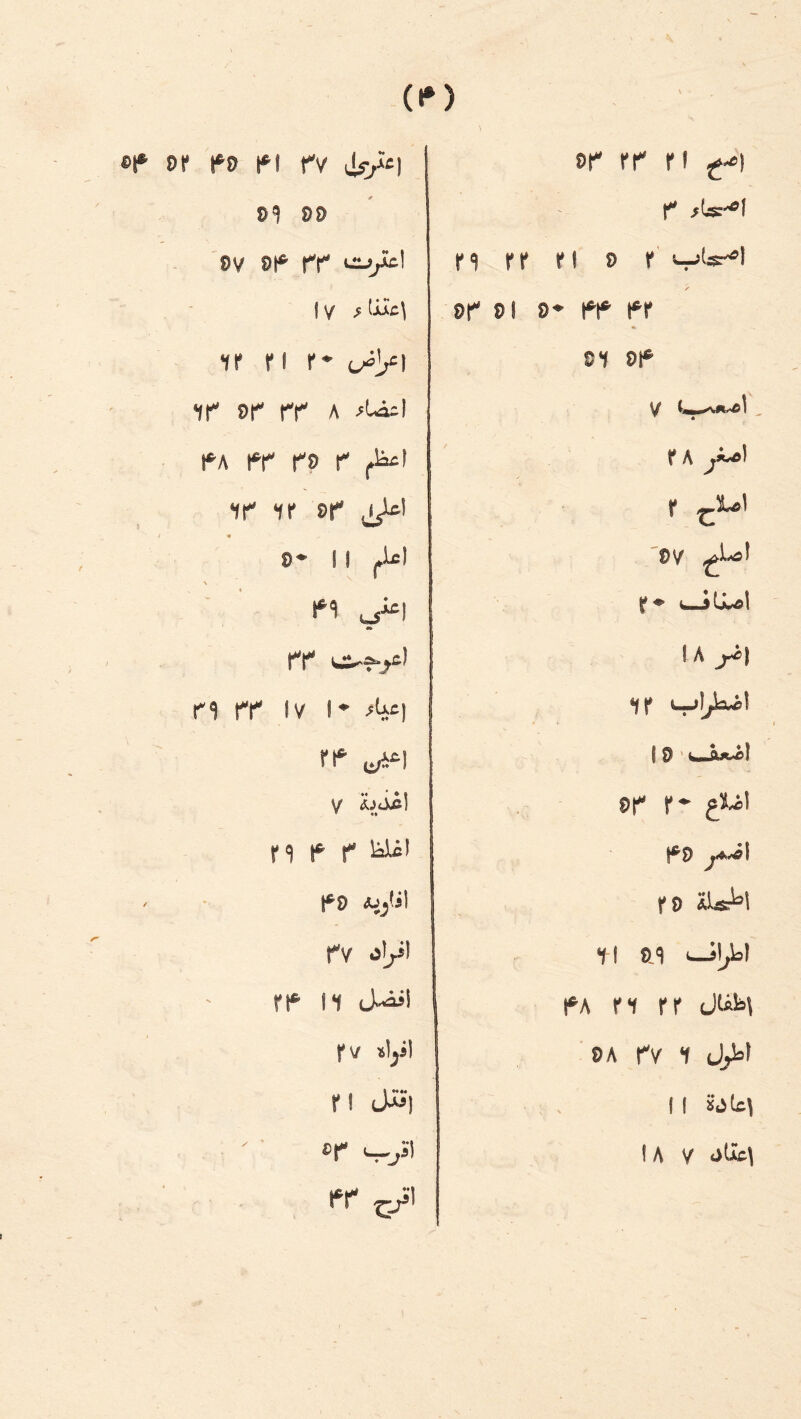 (۴)
اصح ۲۱ ۲۳ ۵۳
اصحاء ۳
اصحاب ۲ ۵ ۲۱ ۲۲ ۲۹
۴۲ ۴۴ ۵۰ ۵۱ ۵۳
۵۴ ۵۶
۷
اصغر ۲۸
اصلاح ۲
اصلح ۵۷
اصناف ۲۰
اضر ۱۸
اضطراب ۶۲
اضعف ۱۵
اضلاع ۲۰ ۵۳
اضمر ۴۵
اطحلة ۲۵
اطراف ۵۹ ۶۱
اطفال ۲۲ ۲۶ ۴۸
اطول ۶ ۳۷ ۵۸
اعادة ۱۱
اعتاد ۷ ۱۸
اعتری ۳۷ ۴۱ ۴۵ ۵۲ ۵۴
۵۵ ۵۹
اعترت ۳۳ ۵۴ ۵۷
اعتناء ۱۷
اعراض ۲۰ ۲۱ ۶۲
اعضاء ۸ ۳۳ ۵۳ ۶۳
اعظم ۳ ۳۵ ۴۳ ۴۸
اعلی ۵۳ ۶۲ ۶۳
اعلم ۱۱ ۵۰
اعنی ۴۹
اعوجت ۳۳
اعیاء ۱۰ ۱۷ ۳۳ ۳۹
اعین ۲۴
اغذیة ۷
اغلظ ۳ ۴ ۲۹
افاویه ۴۵
افراد ۳۷
افضل ۱۶ ۲۴
افواه ۲۷
اقتل ۲۱
اقرب ۵۳
اقرح ۴۳